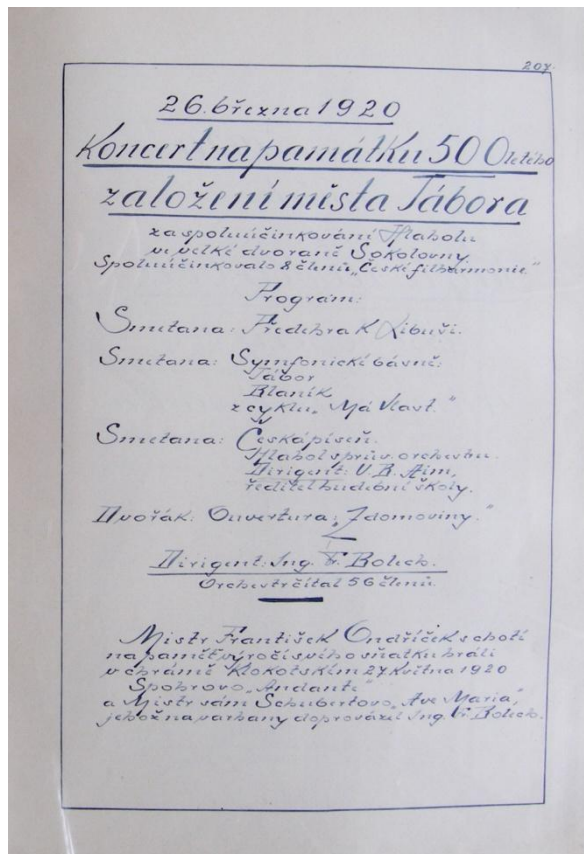 207.
26. března 1920
Koncert na památku 500 letého
založení města Tábora
za spoluúčinkování Hlaholu
ve velké dvoraně Sokolovny.
Spoluúčinkovalo 8 členů „České filharmonie“
Program:
Smetana: Předehra k Libuši.
Smetana: Symfonické básně:
Tábor
Blaník
z cyklu „Má Vlast.“
Smetana: Česká píseň.
Hlahol s prův. orchestru.
Dirigent: V. B. Aim,
ředitel hudební školy.
Dvořák: Ouvertura „Z domoviny.“
Dirigent: Ing. Fr. Bolech.
Orchestr čítal 56 členů.
Mistr František Ondříček s chotí
na paměť výročí svého sňatku hráli
v chrámě Klokotském 27 května 1920
Spohrovo „Andante“
a Mistr sám Schubertovo „Ave Maria“,
jehož na varhany doprovázel Ing. Fr. Bolech.